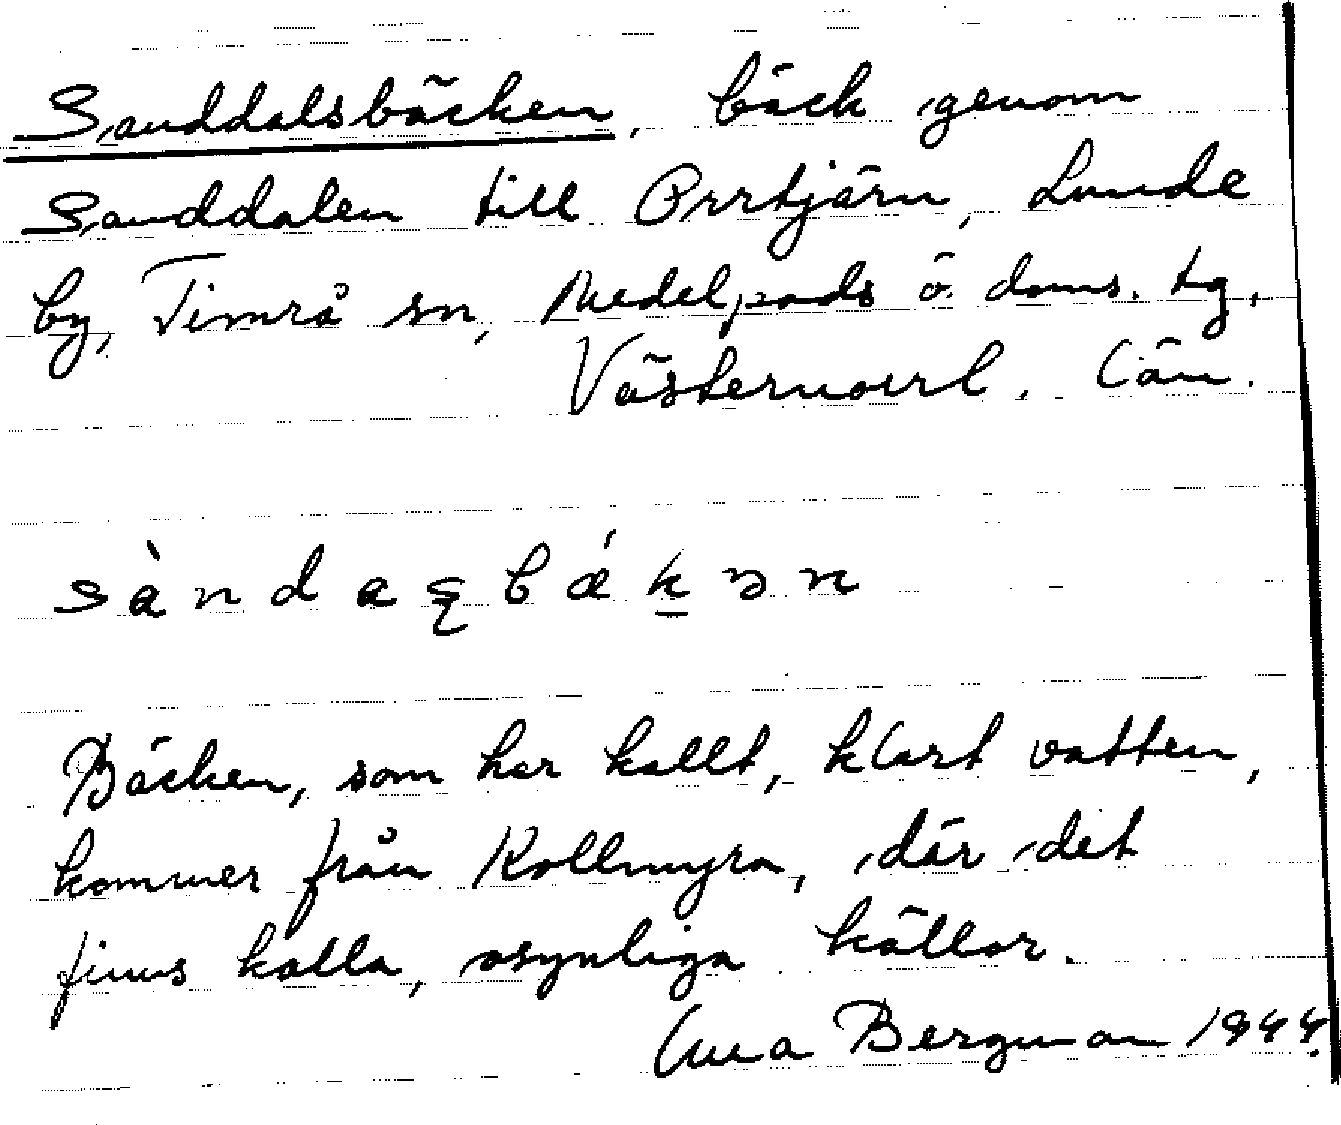 Sanddalsbäcken, bäck genom
Sanddalen till Orrtjärn, Lunde
by, Timrå sn, Medelpads ö. doms. tg,
Västernorrl. län.
sàndaşbǽḵən
Bäcken, som har kallt, klart vatten,
kommer från Kollmyra, där det
finns kalla, osynliga källor.
Anna Bergman 1944.